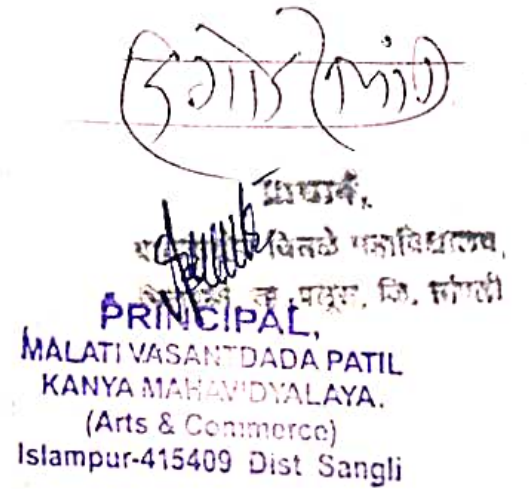 प्राचार्य,
चितळे महाविद्यालय,
पलूस, जि. सांगली
PRINCIPAL,
MALATI VASANTDADA PATIL
KANYA MAHAVIDYALAYA.
(Arts & Commerce)
Islampur-415409 Dist Sangli